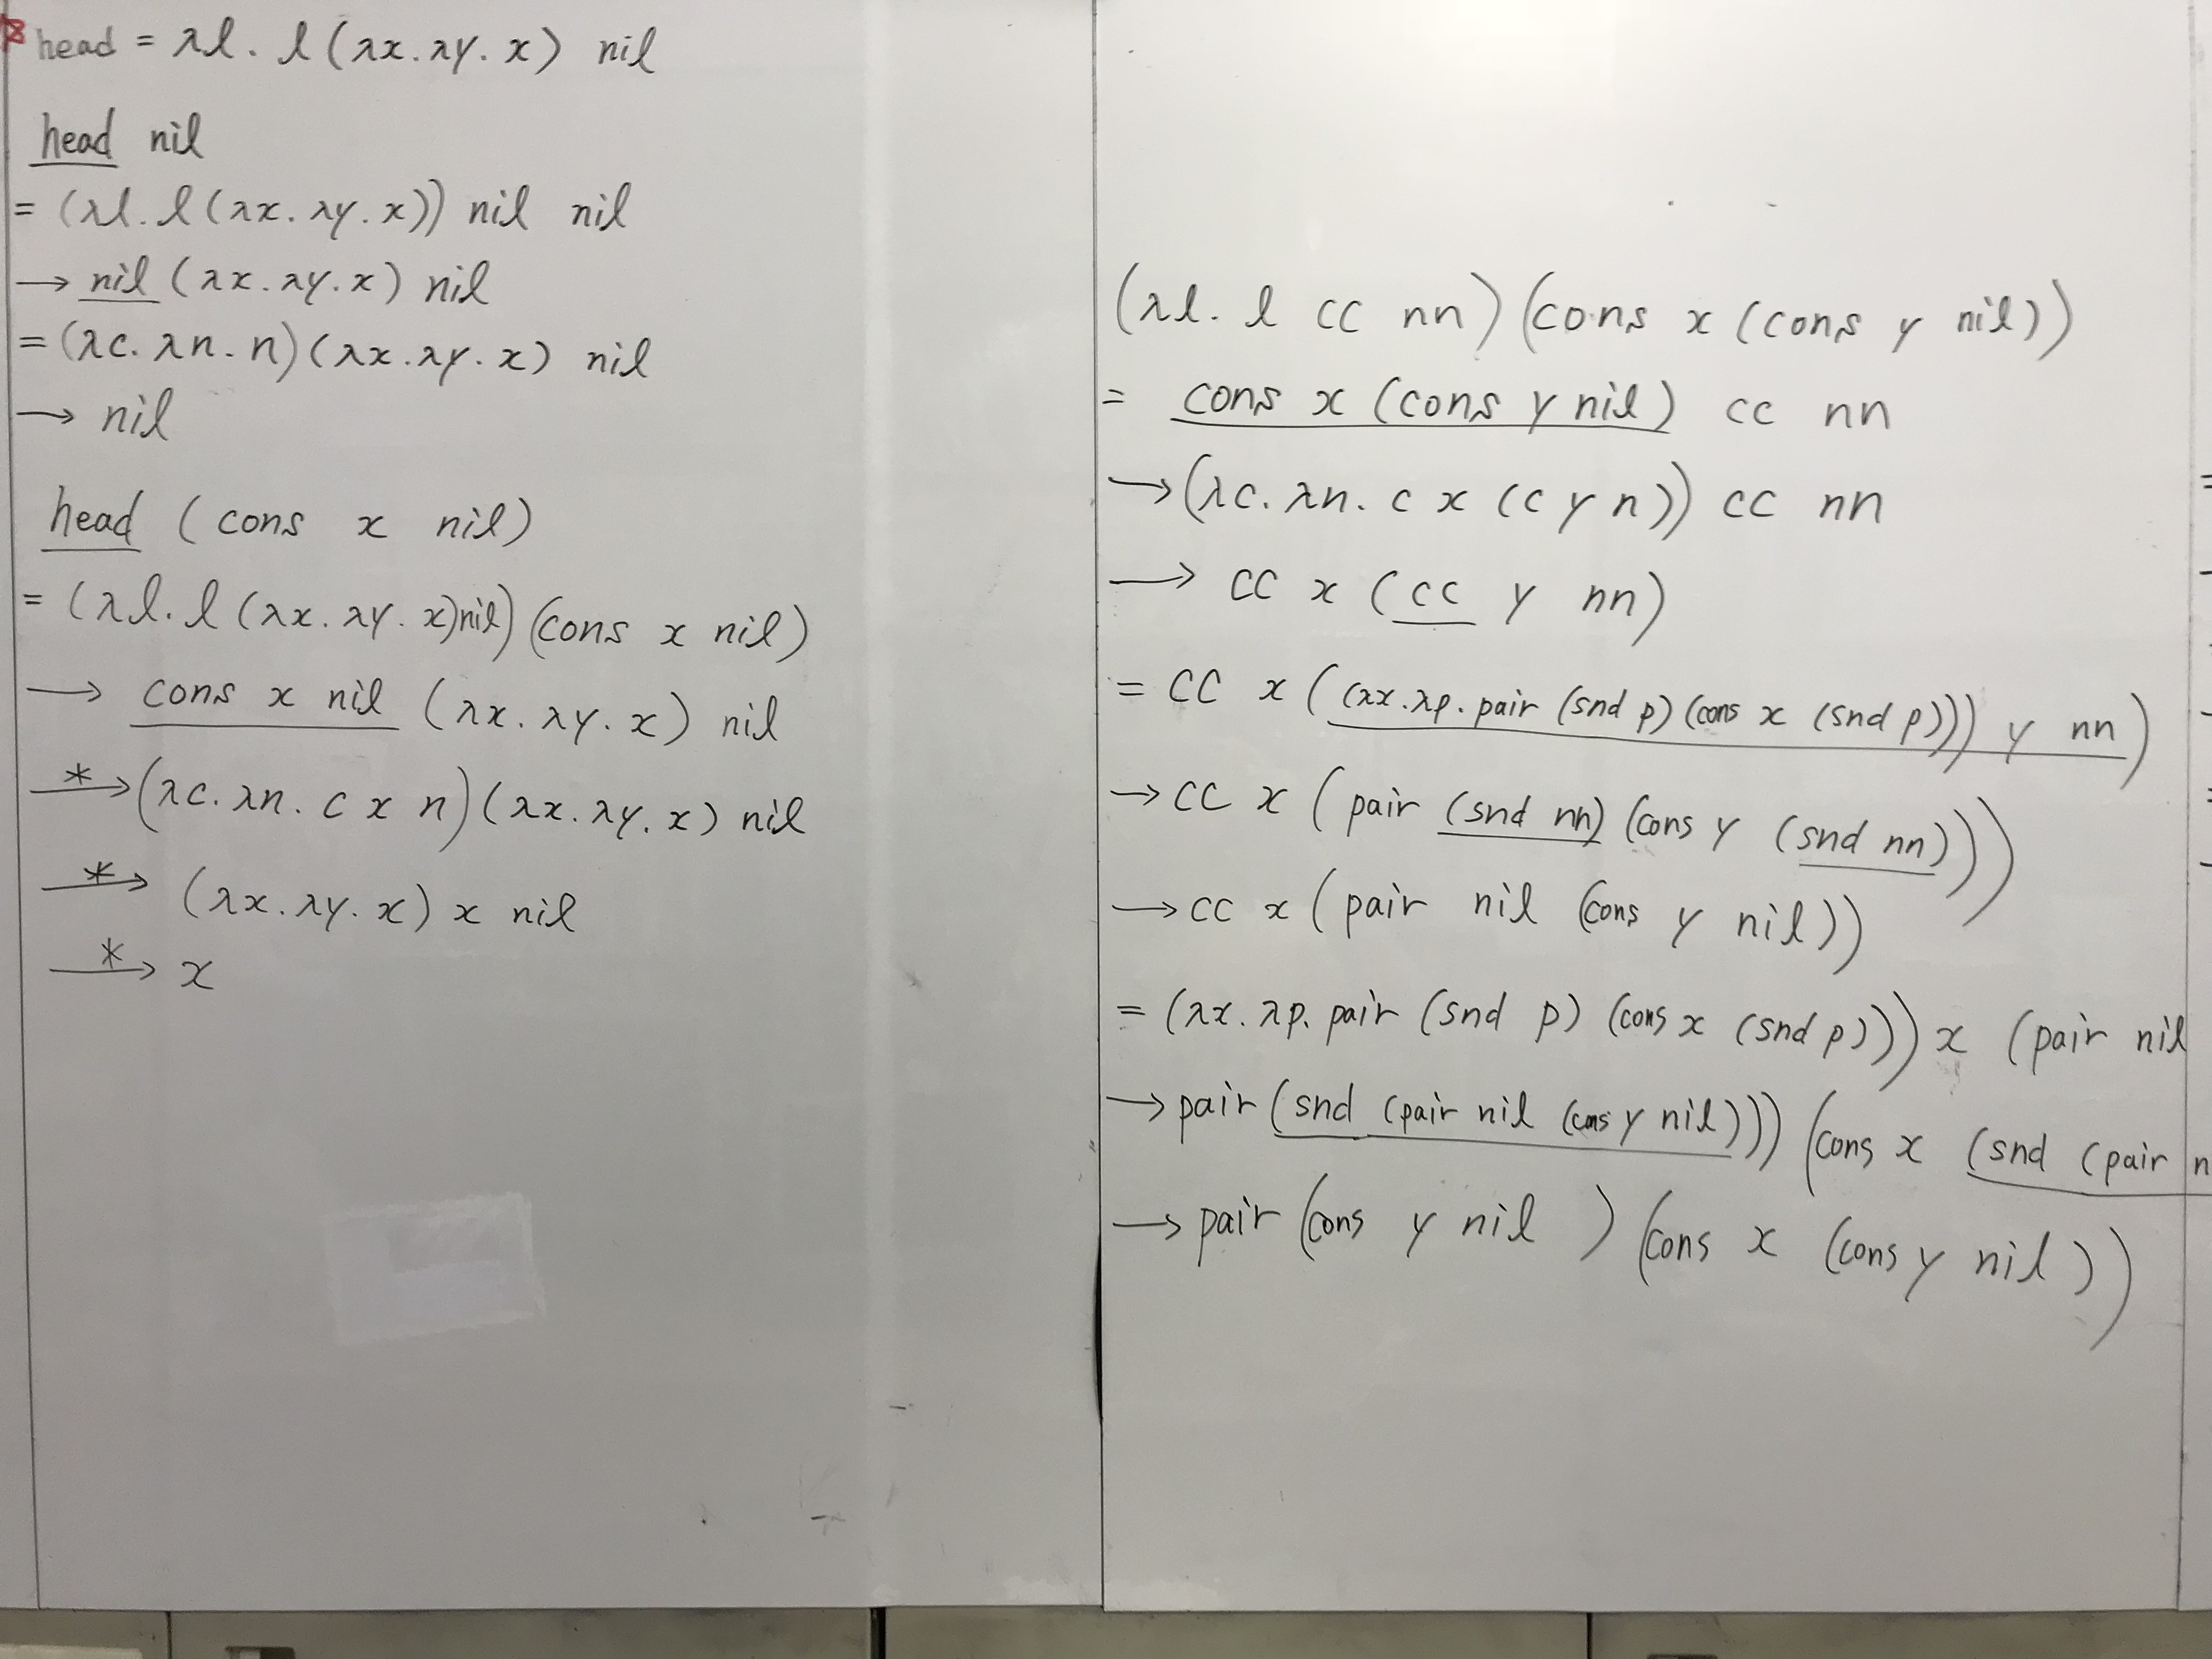 head = λl. l (λx. λy. x) nil
head nil
= (λl. l (λx. λy. x)) nil nil
→ nil (λx. λy. x) nil
= (λc. λn. n) (λx. λy. x) nil
→ nil
head (cons x nil)
= (λl. l (λx. λy. x) nil) (cons x nil)
→ cons x nil (λx. λy. x) nil
*→ (λc. λn. c x n) (λx. λy. x) nil
*→ (λx. λy. x) x nil
*→ x
(λl. l cc nn) (cons x (cons y nil))
= cons x (cons y nil) cc nn
→ (λc. λn. c x (c y n)) cc nn
→ cc x (cc y nn)
= cc x ((λx. λp. pair (snd p) (cons x (snd p))) y nn)
→ cc x (pair (snd nn) (cons y (snd nn)))
→ cc x (pair nil (cons y nil))
= (λx. λp. pair (snd p) (cons x (snd p))) x (pair nil
→ pair (snd (pair nil (cons y nil))) (cons x (snd (pair n
→ pair (cons y nil) (cons x (cons y nil))